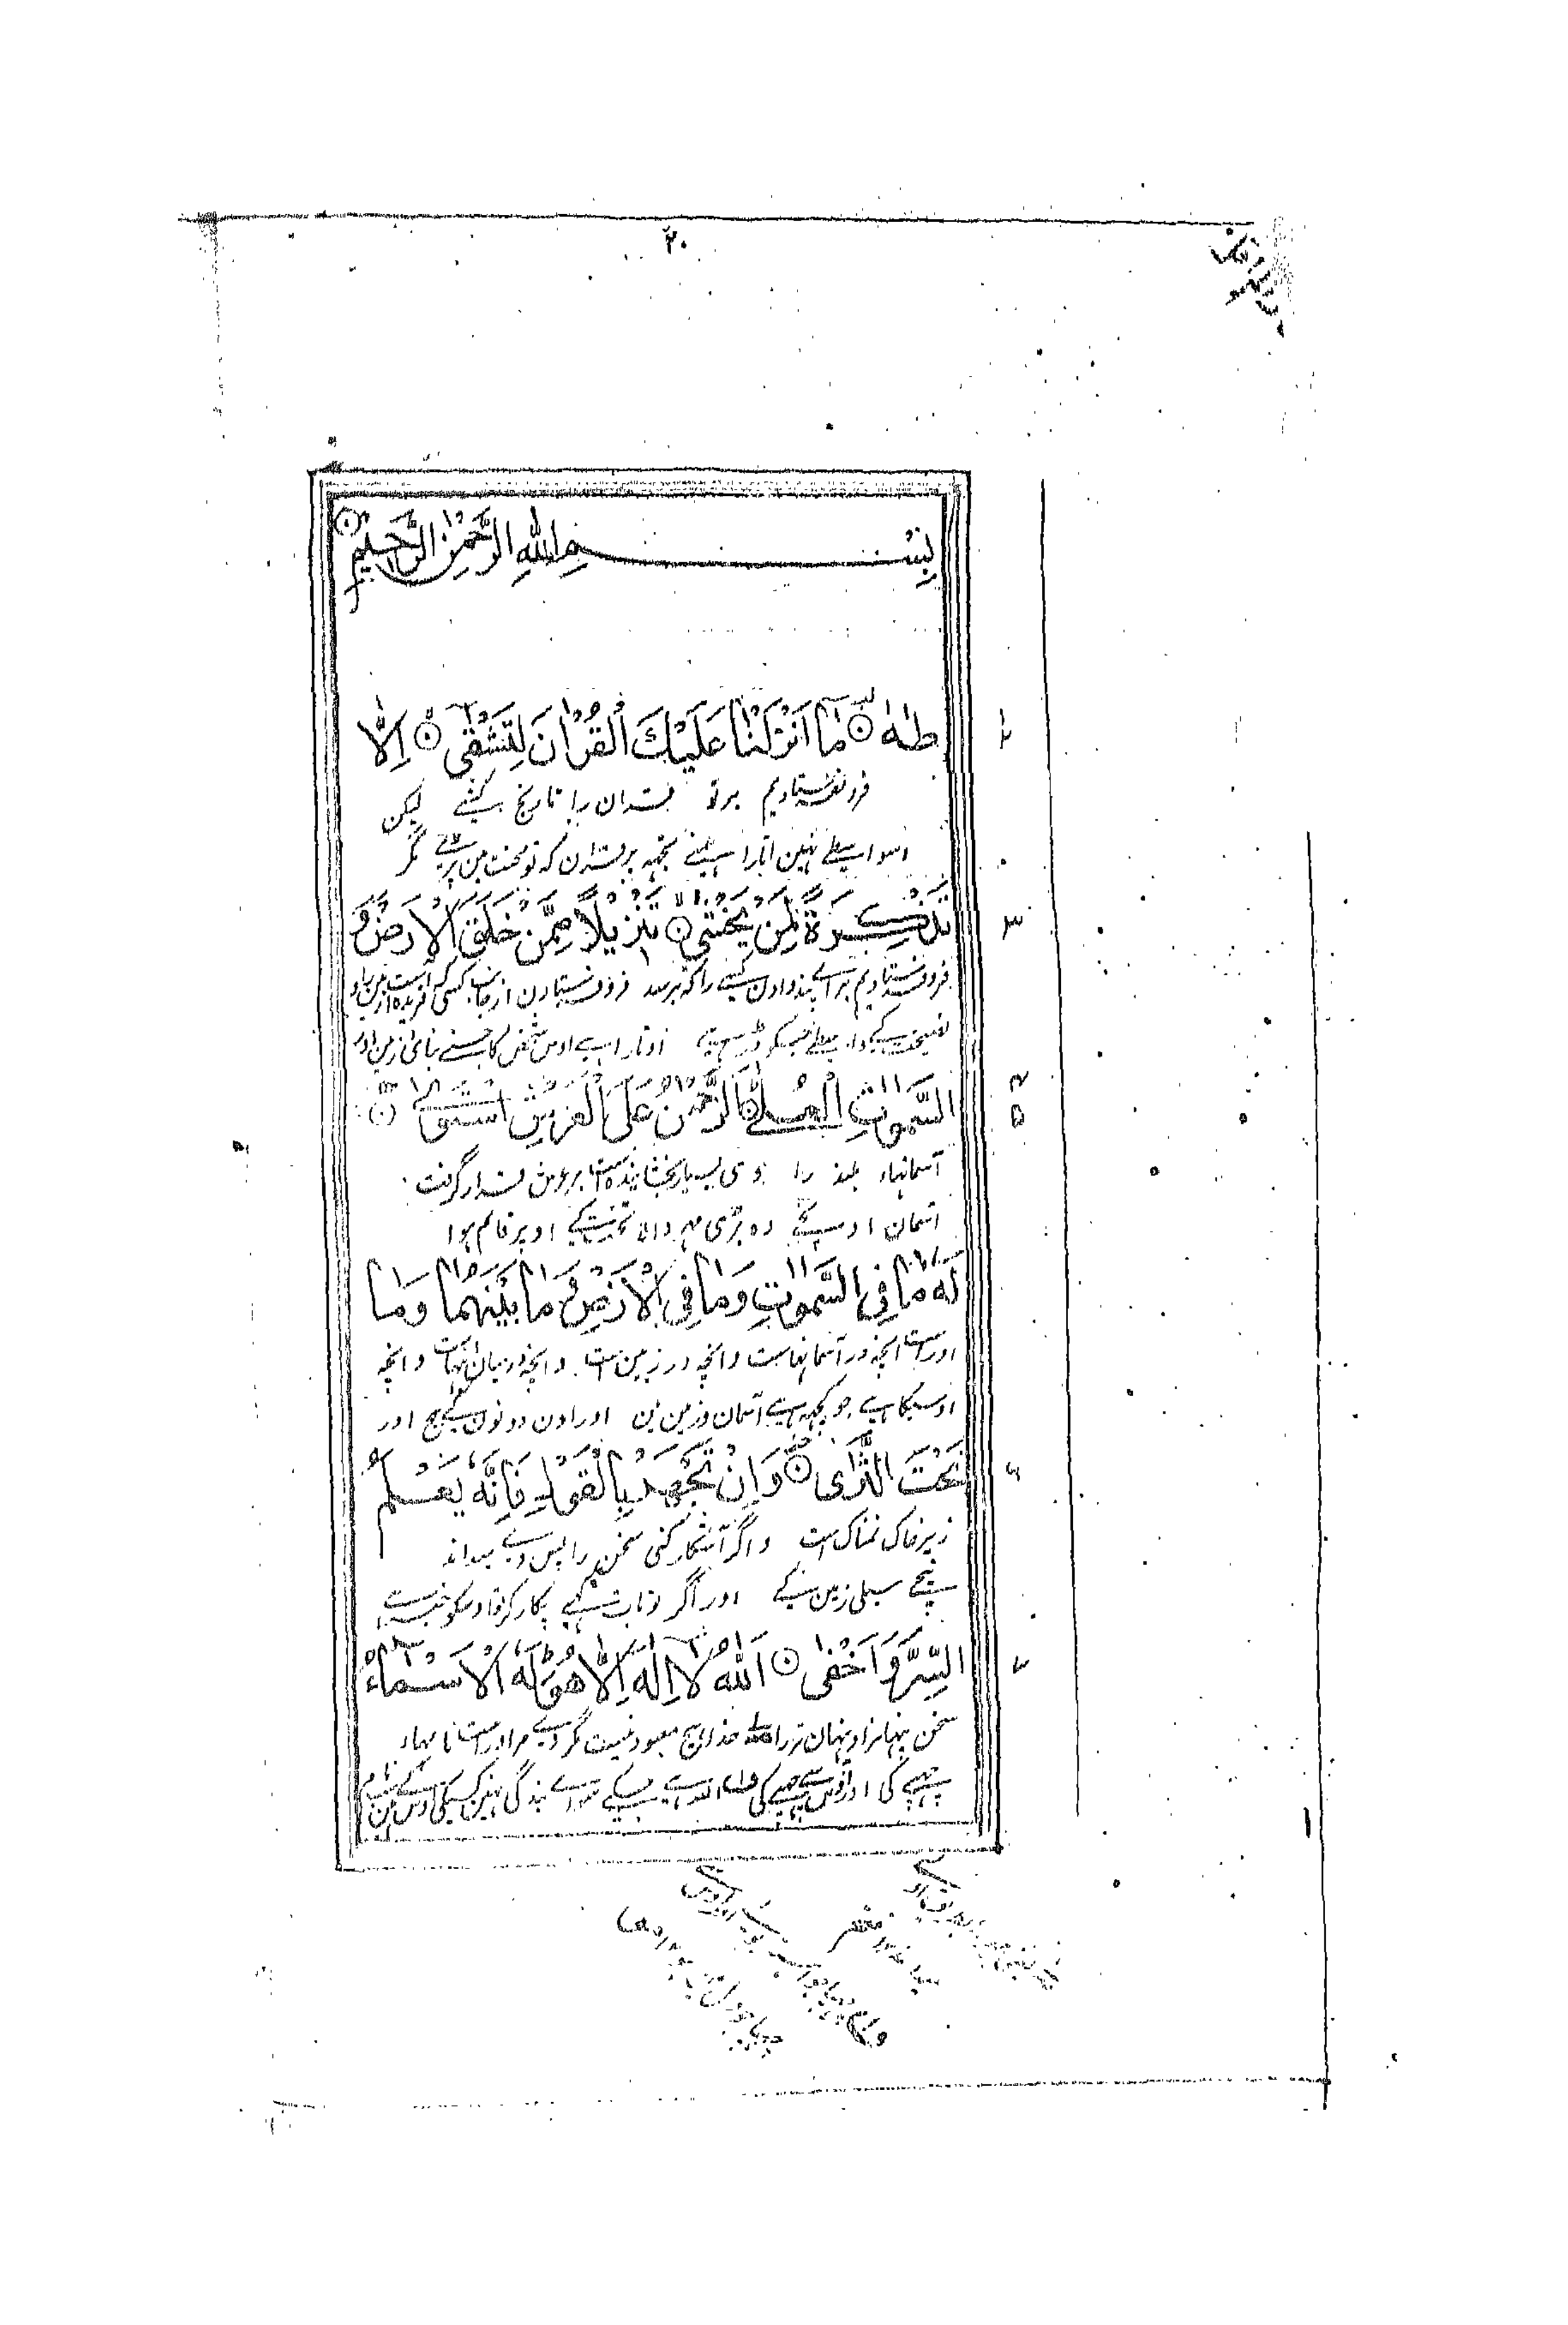 ۲۰
بِسْمِ اللّٰهِ الرَّحْمٰنِ الرَّحِيْمِ
طٰهٰ ۝ مَا اَنْزَلْنَا عَلَيْكَ الْقُرْاٰنَ لِتَشْقٰى ۝ اِلَّا
فرو نفرستادیم برتو قرآن را تا رنج بکشی لیکن
اسواسطے نہین اتارا ہمنے تجھہ پر قران کہ تو محنت مین پڑے مگر
تَذْكِرَةً لِّمَنْ يَّخْشٰى ۝ تَنْزِيْلًا مِّمَّنْ خَلَقَ الْاَرْضَ وَ
فرو فرستادیم براے پند دادن کسے را کہ بترسد فرو فرستادن از جانب کسی کہ آفریدہ است زمین را و
نصیحت کے واسطے جسکو ڈر ہے اوتارا ہے اوس شخص کا جسنے بنائی زمین اور
السَّمٰوٰتِ الْعُلٰى ۝ اَلرَّحْمٰنُ عَلَى الْعَرْشِ اسْتَوٰى ۝
آسمانہاء بلند را وی بسیار بخشایندہ است برعرش قرار گرفت
آسمان اونچے وہ بڑی مہر والا تخت کے اوپر قائم ہوا
لَهٗ مَا فِى السَّمٰوٰتِ وَمَا فِى الْاَرْضِ وَمَا بَيْنَهُمَا وَمَا
اوراست آنچہ در آسمانہاست وانچہ در زمین است وانچہ درمیان اینہاست وانچہ
اوسیکا ہے جو کچھہ ہے آسمان وزمین مین اور اون دونون کے بیچ اور
تَحْتَ الثَّرٰى ۝ وَاِنْ تَجْهَرْ بِالْقَوْلِ فَاِنَّهٗ يَعْلَمُ
زیر خاک نمناک است واگر آشکار کنی سخن را پس وے میداند
نیچے سیلی زمین کے اور اگر تو بات کہے پکار کر تو اوسکو خبر ہے
السِّرَّ وَاَخْفٰى ۝ اَللّٰهُ لَا اِلٰهَ اِلَّا هُوَ لَهُ الْاَسْمَآءُ
سخن پنہان را و پنہان تر را خدا ہیچ معبود نیست مگر وے مر اوراست نامہاء
چھپے کی اور اوس سے چھپے کی اللہ ہے جسکے سوا بندگی نہین کسیکی اوسکے ہین نام
۲
۳
۴
۵
۶
۷